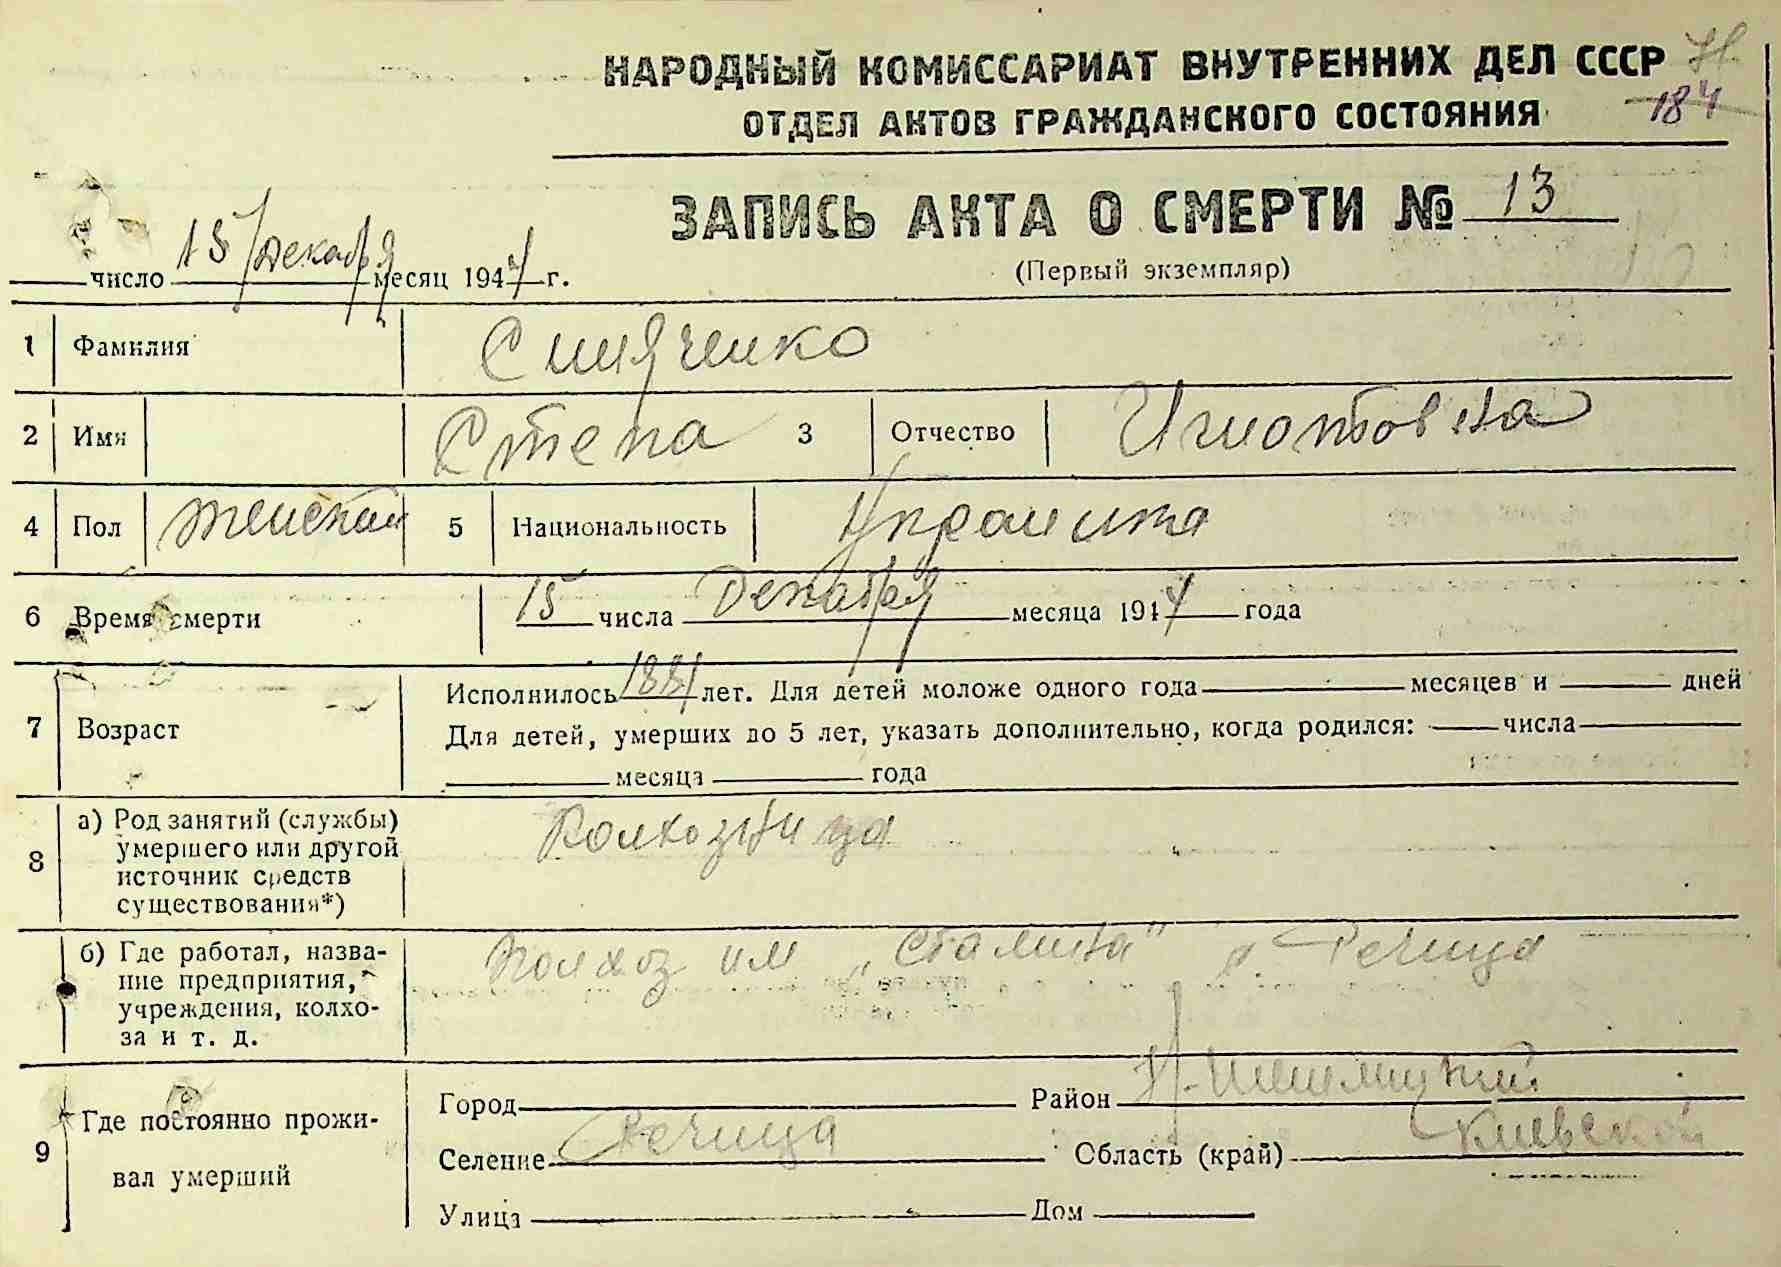 НАРОДНЫЙ КОМИССАРИАТ ВНУТРЕННИХ ДЕЛ СССР
ОТДЕЛ АКТОВ ГРАЖДАНСКОГО СОСТОЯНИЯ 184
ЗАПИСЬ АКТА О СМЕРТИ № 13
(Первый экземпляр)
число 15 Декабря месяц 1944 г.
1 Фамилия
2 Имя Степа 3 Отчество Игнатовна
4 Пол Женский 5 Национальность Украинка
6 Время смерти 15 числа Декабря месяца 1944 года
7 Возраст Исполнилось 1881 лет. Для детей моложе одного года месяцев и дней
Для детей, умерших до 5 лет, указать дополнительно, когда родился: числа
месяца года
8 а) Род занятий (службы) Колхозница
умершего или другой
источник средств
существования*)
б) Где работал, назва- Колхоз им „Сталина" с. Речица
ние предприятия,
учреждения, колхо-
за и т. д.
9 Где постоянно прожи-
вал умерший
Город Район
Селение Речица Область (край) Киевской
Улица Дом